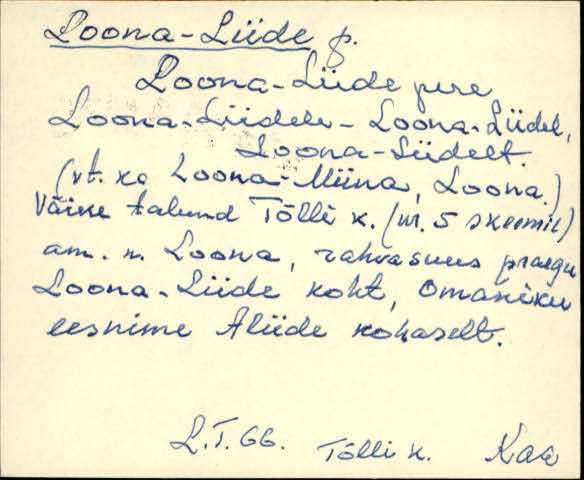 Loona-Liide p.
Loona-Liide pere
Loona-Liidele - Loona-Liidel,
Loona-Liidelt.
(vt. ka Loona-Miina, Loona.)
Väike talund Tõlli k. (nr. 5 skeemil)
am. n. Loona, rahvasuus praegu
Loona-Liide koht, omaniku
eesnime Aliide kohaselt.
L.T. 66. Tõlli k. Kaa